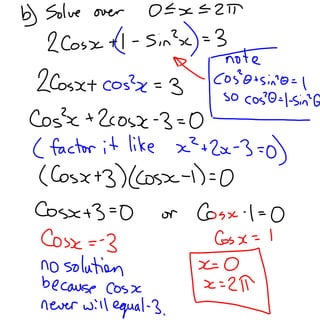 b) Solve over 0≤x≤2π
2Cosx+(1-Sin²x)=3
note
Cos²θ+sin²θ=1
so cos²θ=1-sin²θ
2Cosx+cos²x=3
Cos²x+2cosx-3=0
(factor it like x²+2x-3=0)
(Cosx+3)(Cosx-1)=0
Cosx+3=0 or Cosx-1=0
Cosx=-3
no solution
because cosx
never will equal-3.
Cosx=1
x=0
x=2π